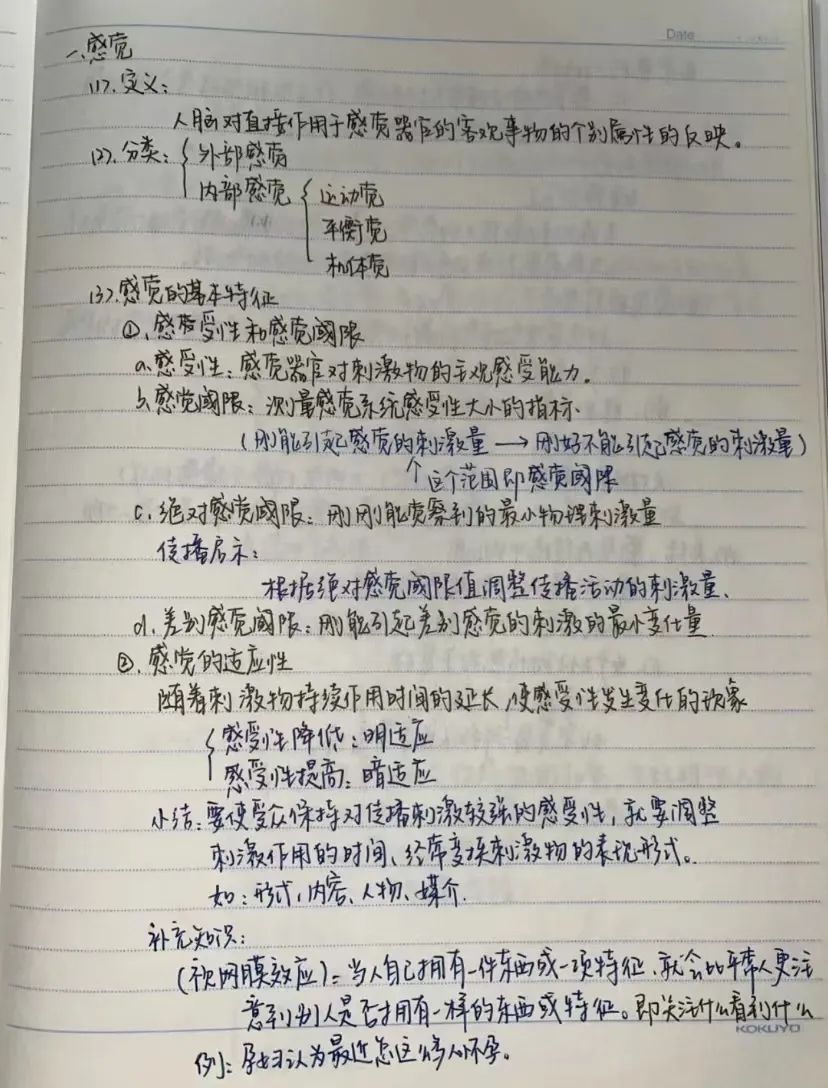 Date
一、感觉
(1).定义：
人脑对直接作用于感觉器官的客观事物的个别属性的反映。
(2).分类：{外部感觉
内部感觉{运动觉
平衡觉
机体觉
(3).感觉的基本特征
①.感受性和感觉阈限
a.感受性：感觉器官对刺激物的主观感受能力。
b.感觉阈限：测量感觉系统感受性大小的指标.
(刚能引起感觉的刺激量→刚好不能引起感觉的刺激量)
↑这个范围即感觉阈限
c.绝对感觉阈限：刚刚能觉察到的最小物理刺激量
传播启示：
根据绝对感觉阈限值调整传播活动的刺激量、
d.差别感觉阈限：刚能引起差别感觉的刺激的最小变化量
②.感觉的适应性
随着刺激物持续作用时间的延长,使感受性发生变化的现象
{感受性降低：明适应
感受性提高：暗适应
小结：要使受众保持对传播刺激较强的感受性，就要调整
刺激作用的时间、经常变换刺激物的表现形式。
如：形式、内容、人物、媒介.
补充知识：
(视网膜效应)：当人自己拥有一件东西或一项特征、就会比平常人更注
意到别人是否拥有一样的东西或特征。即关注什么看到什么
KOKUYO
例：孕妇认为最近怎这么多人怀孕。